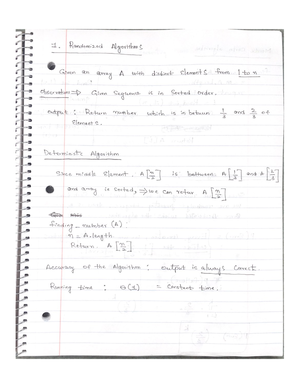 2. Randomized Algorithms
Given an array A with distinct elements from 1 to n
observation => Given sequence is in sorted order.
output : Return number which is in between 1/3 and 2/3 of
elements.
Deterministic Algorithm
Since middle element A[n/2] is between A[
and array is sorted, => we can return A[n/2]
finding_number (A) :
n = A.length
Return A[n/2]
Accuracy of the Algorithm : output is always correct.
Running time : = constant time.